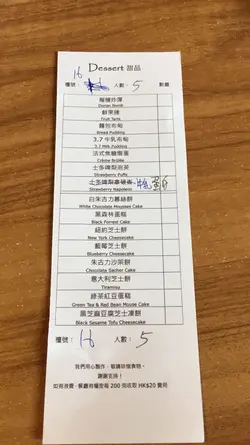 Dessert 甜品
16
檯號： 人數： 5 數量
榴槤炸彈
Durian Bomb
鮮果撻
Fruit Tarts
麵包布甸
Bread Pudding
3.7 牛乳布甸
3.7 Milk Pudding
法式焦糖燉蛋
Crème Brûlée
士多啤梨泡芙
Strawberry Puffs
士多啤梨拿破崙
Strawberry Napoleon
白朱古力慕絲餅
White Chocolate Mousse Cake
黑森林蛋糕
Black Forrest Cake
紐約芝士餅
New York Cheesecake
藍莓芝士餅
Blueberry Cheesecake
朱古力沙架餅
Chocolate Sacher Cake
意大利芝士餅
Tiramisu
綠茶紅豆蛋糕
Green Tea & Red Bean Mouse Cake
黑芝麻豆腐芝士凍餅
Black Sesame Tofu Cheesecake
檯號： 16 人數： 5
我們用心製作，敬請珍惜食物，
謝謝支持！
如有浪費，餐廳有權按每 200 克收取 HK$20 費用